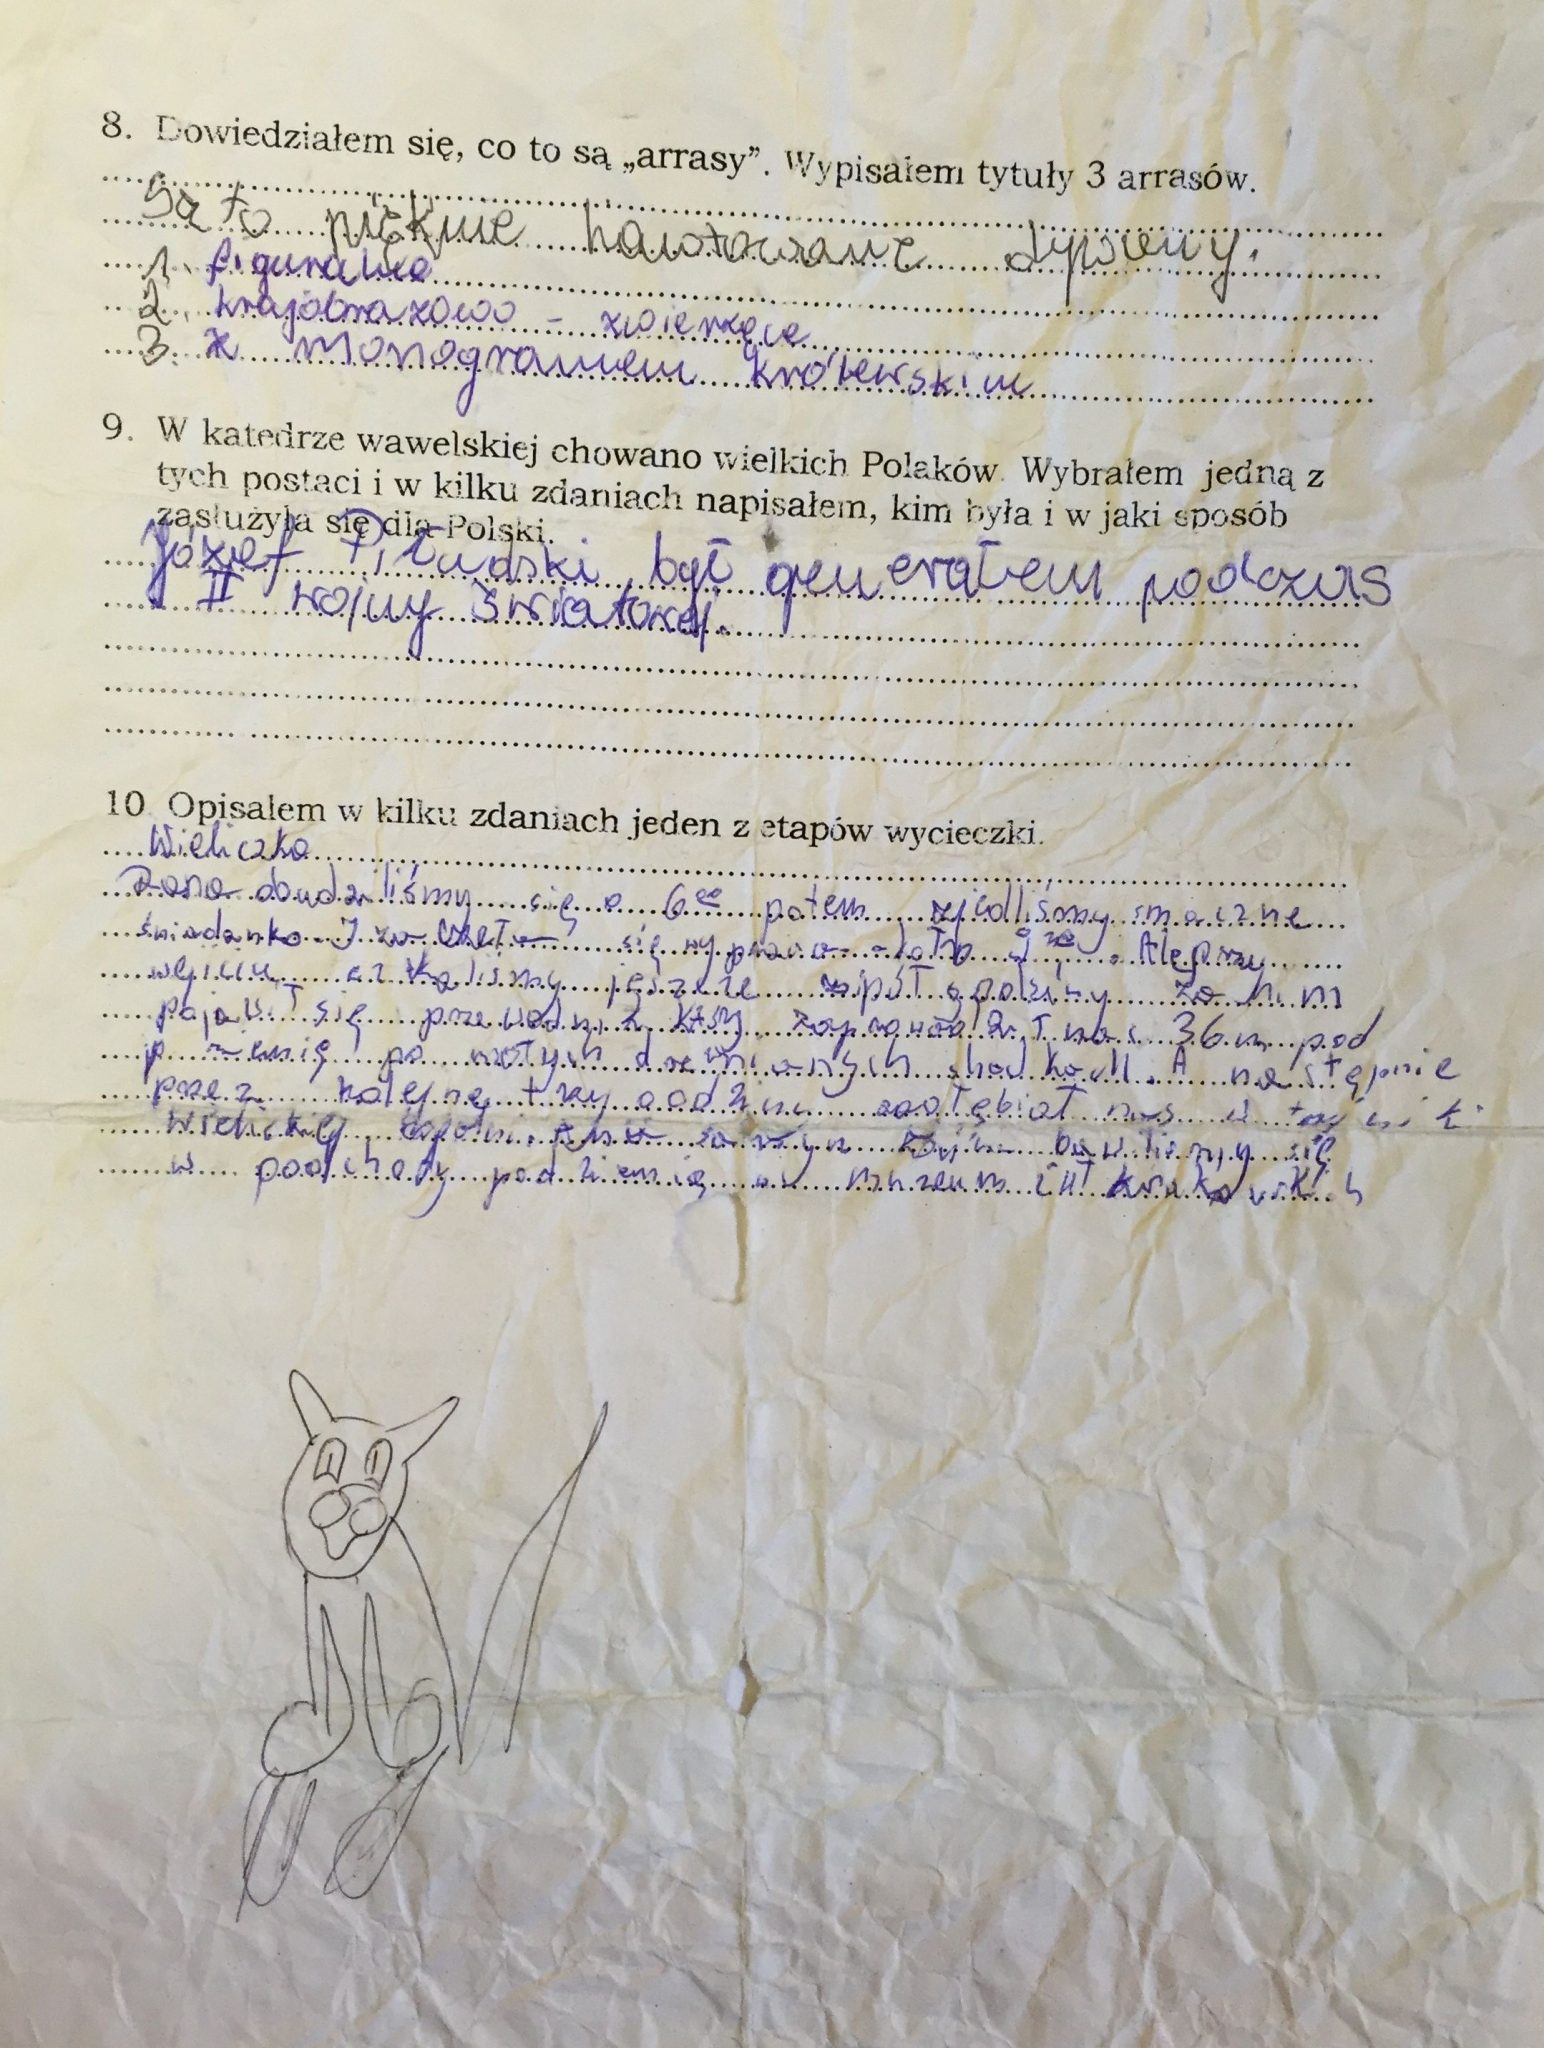 8. Dowiedziałem się, co to są „arrasy”. Wypisałem tytuły 3 arrasów.
Są to pięknie haftowane dywany.
1. figuralne
2. krajobrazowo - zwierzęce
3. z monogramem królewskim
9. W katedrze wawelskiej chowano wielkich Polaków. Wybrałem jedną z
tych postaci i w kilku zdaniach napisałem, kim była i w jaki sposób
zasłużyła się dla Polski.
Józef Piłsudski był generałem podczas
II wojny światowej.
10. Opisałem w kilku zdaniach jeden z etapów wycieczki.
Wieliczka
Rano obudziliśmy się o 6⁰⁰ potem zjedliśmy smaczne
śniadanko. I się wyprawa. Ale przy
wejściu czekaliśmy jeszcze z pół godziny za nim
pojawił się przewodnik zaprowadził nas 36 m pod
ziemię po drewnianych schodkach. A następnie
przez kolejne trzy godziny nas w
bawiliśmy się
w podchody pod ziemią w muzeum krakowskich